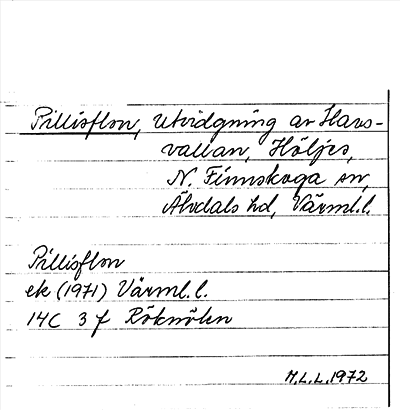 Pillisflon, utvidgning av Havs-
vallan, Höljes,
N. Finnskoga sn,
Älvdals hd, Värml.l.
Pillisflon
ek (1971) Värml.l.
14C 3 f Röknölen
M.L.L. 1972